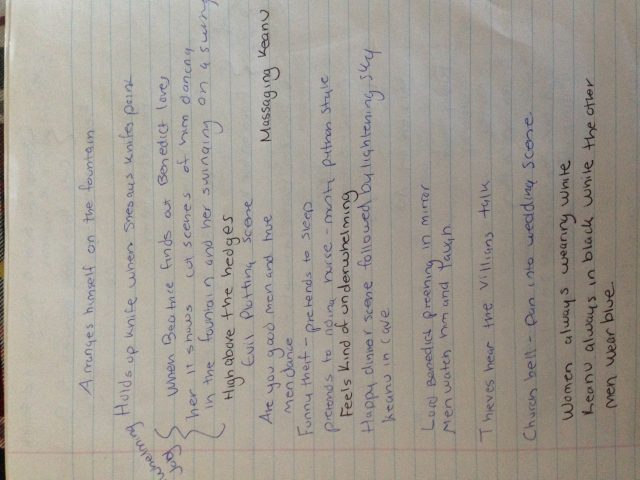 Arranges himself on the fountain
Holds up knife when she says knifes point
unerring
When Beatrice finds out Benedict loves
her it shows cut scenes of him dancing
in the fountain and her swinging on a swing
High above the hedges
Evil plotting scene
Massaging Keanu
Are you good men and true
men dance
Funny theif - pretends to sleep
pretends to riding horse - monty python style
Feels kind of underwhelming
Happy dinner scene followed by lightening sky
keanu in cave
Lord Benedict preening in mirror
Men watch him and laugh
Thieves hear the villians talk
Church bell - pan into wedding scene
Women always wearing white
Keanu always in black while the other
men wear blue.